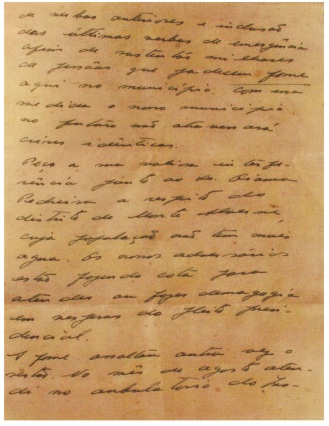 de verbas anteriores e inclusão
das últimas verbas de emergência
afim de sustentar milhares
de pessôas que padecem fome
aqui no município. Com essa
medida o novo município
no futuro não atravessará
crises idênticas.
Peço a sua valiosa interfe-
rência junto ao dr.
Pedreira a respeito do
distrito de Monte
cuja população não tem mais
agua. Os nossos adversários
estão fazendo cota para
atender ou fazer demagogia
em vesperas do pleito presi-
dencial.
A fome assaltou outra vez o
sertão. No mês de agosto aten-
di no ambulatorio do